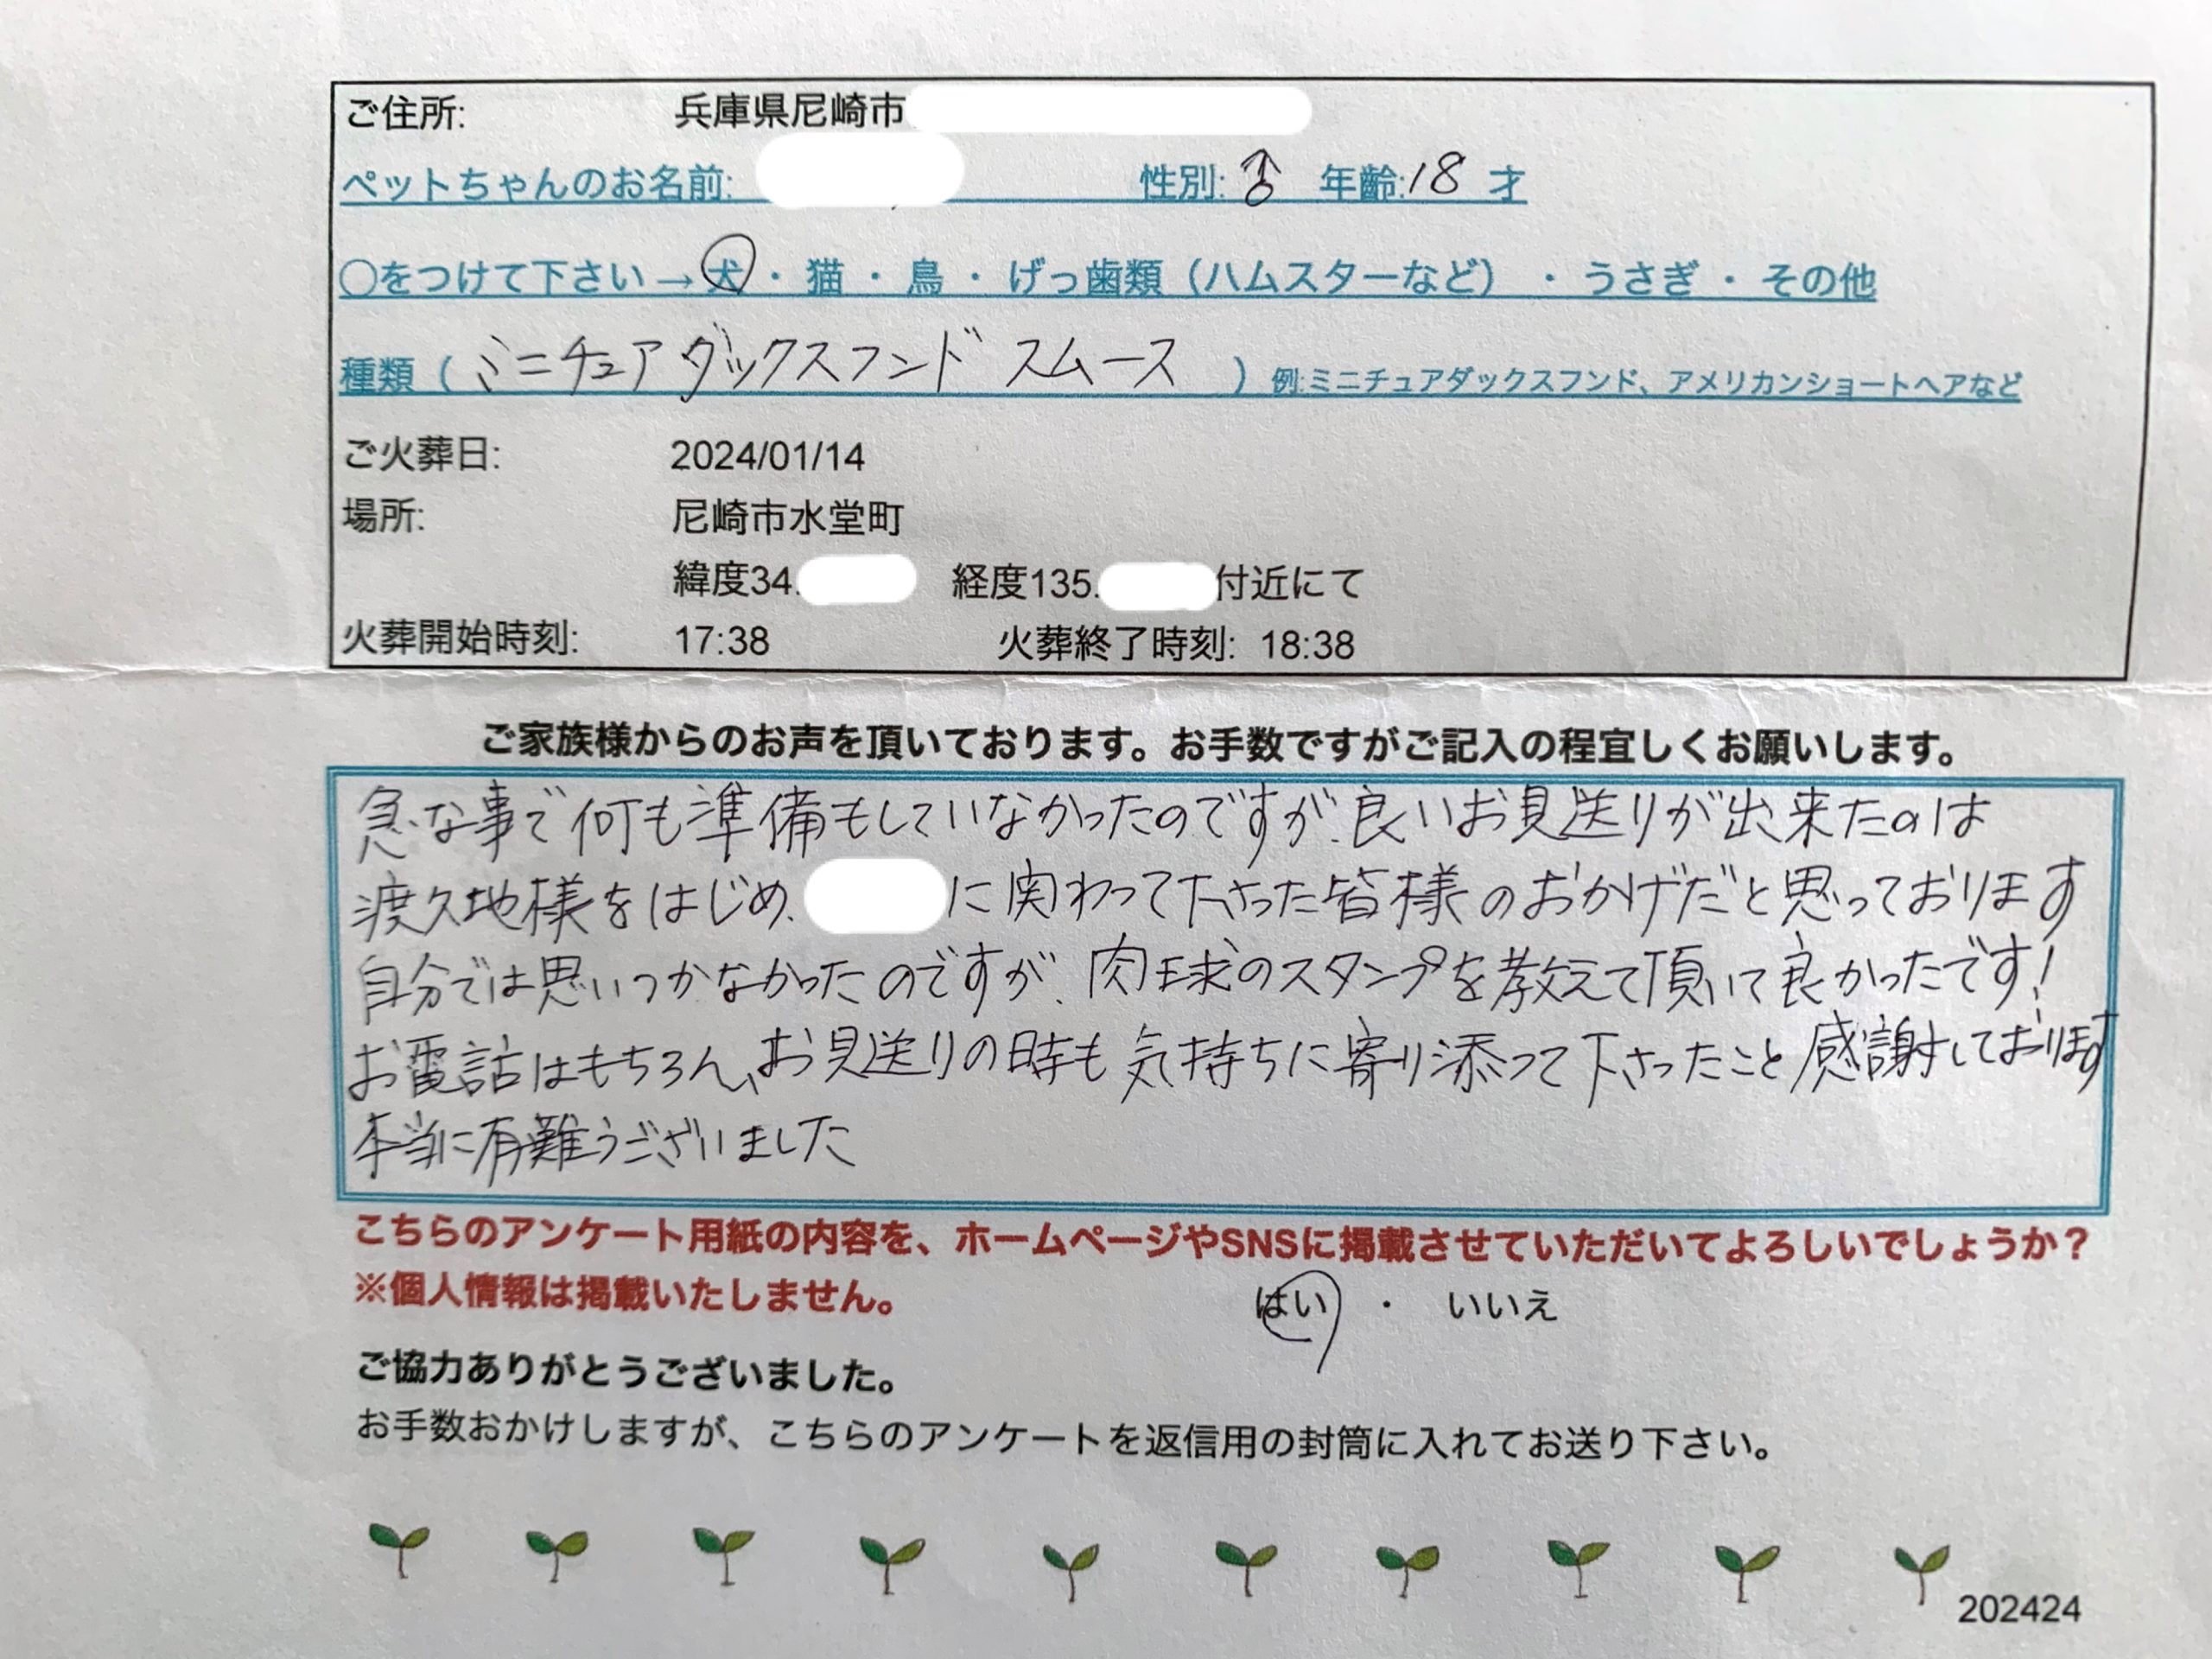 ご住所: 兵庫県尼崎市
ペットちゃんのお名前: 性別:♂ 年齢:18 才
○をつけて下さい→犬・猫・鳥・げっ歯類（ハムスターなど）・うさぎ・その他
種類（ミニチュアダックスフンド スムース）例:ミニチュアダックスフンド、アメリカンショートヘアなど
ご火葬日: 2024/01/14
場所: 尼崎市水堂町
緯度34. 経度135. 付近にて
火葬開始時刻: 17:38 火葬終了時刻: 18:38
ご家族様からのお声を頂いております。お手数ですがご記入の程宜しくお願いします。
急な事で何も準備もしていなかったのですが、良いお見送りが出来たのは
渡久地様をはじめ、に関わって下さった皆様のおかげだと思っております
自分では思いつかなかったのですが、肉球のスタンプを教えて頂いて良かったです!
お電話はもちろん、お見送りの時も気持ちに寄り添って下さったこと感謝しております
本当に有難うございました
こちらのアンケート用紙の内容を、ホームページやSNSに掲載させていただいてよろしいでしょうか？
※個人情報は掲載いたしません。 はい ・ いいえ
ご協力ありがとうございました。
お手数おかけしますが、こちらのアンケートを返信用の封筒に入れてお送り下さい。
202424